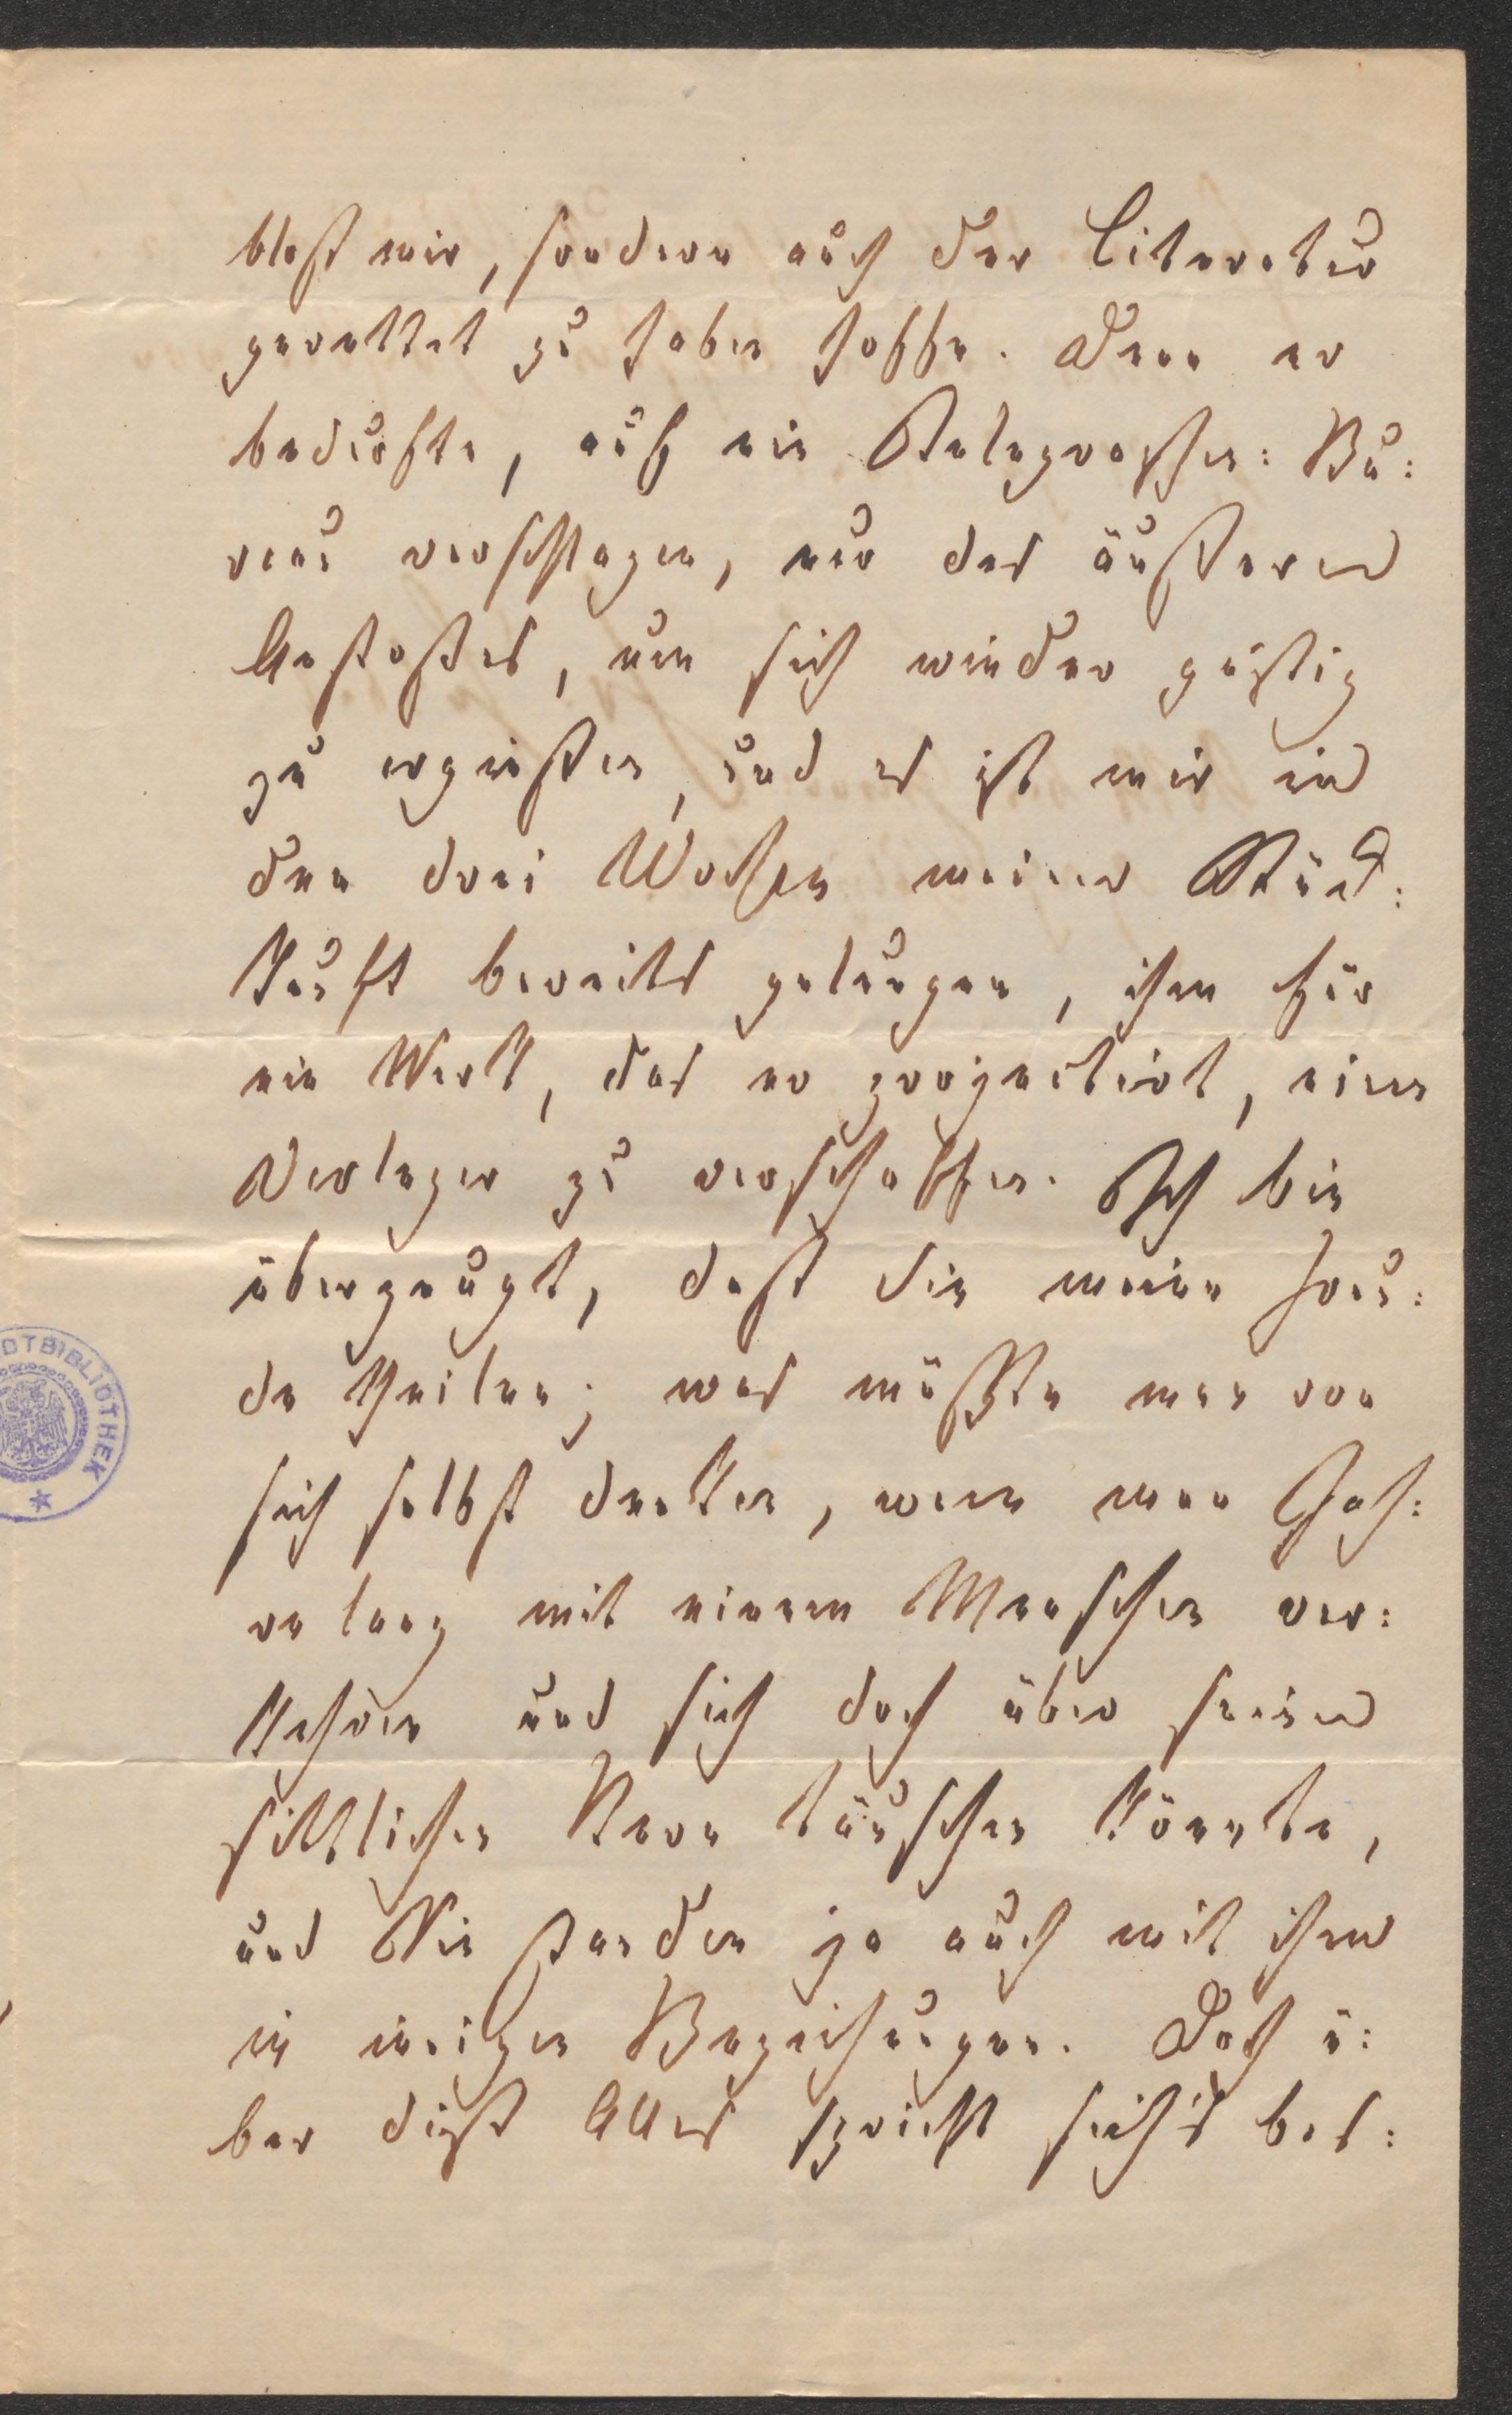 bloß mir, sondern auch der Literatur
gerettet zu haben hoffe. Denn er
bedurfte, auf ein Telegraphen: Bü:
reau verschlagen, nur des äußeren
Anstoßes, um sich wieder geistig
zu ergießen, und es ist mir in
den drei Wochen meiner Rück:
kunft bereits gelungen, ihm für
ein Werk, das er projectirt, einen
Verleger zu verschaffen. Ich bin
überzeugt, daß Sie meine Freu:
de theilen; was müßte man von
sich selbst denken, wenn man Jah:
re lang mit einem Menschen ver:
kehren und sich doch über seinen
sittlichen Kern täuschen könnte,
und Sie standen ja auch mit ihm
in innigen Beziehungen. Doch ü:
ber dieß Alles spricht sich's bes:
STADTBIBLIOTHEK